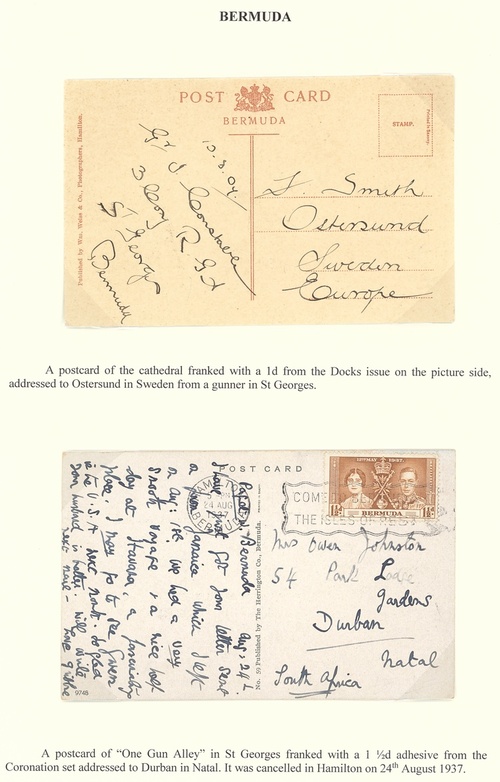 BERMUDA
POST CARD
BERMUDA
STAMP.
Published by Wm. Weiss & Co., Photographers, Hamilton.
10.3.04.
Gr J. Constable
3 Coy R.G.A
St Georges
Bermuda
J. Smith
Ostersund
Sweden
Europe
A postcard of the cathedral franked with a 1d from the Docks issue on the picture side,
addressed to Ostersund in Sweden from a gunner in St Georges.
POST CARD
Paget. Bermuda Aug. 24th
I have just got your letter sent
Jamaica which I left
on Aug: we had a very
smooth voyage & a nice half
day at Havana, a fascinating
place. I may go to see
in the U.S.A next month. So glad
your husband is better. Will write
9748
No. 59 Published by The Herrington Co., Bermuda.
HAMILTON
24 AUG
37
BERMUDA
COME
THE ISLES OF REST
12TH MAY 1937.
1½d BERMUDA 1½d
Mrs Owen Johnston
54 Park Lane
Gardens
Durban
Natal
South Africa
A postcard of “One Gun Alley” in St Georges franked with a 1 ½d adhesive from the
Coronation set addressed to Durban in Natal. It was cancelled in Hamilton on 24th August 1937.